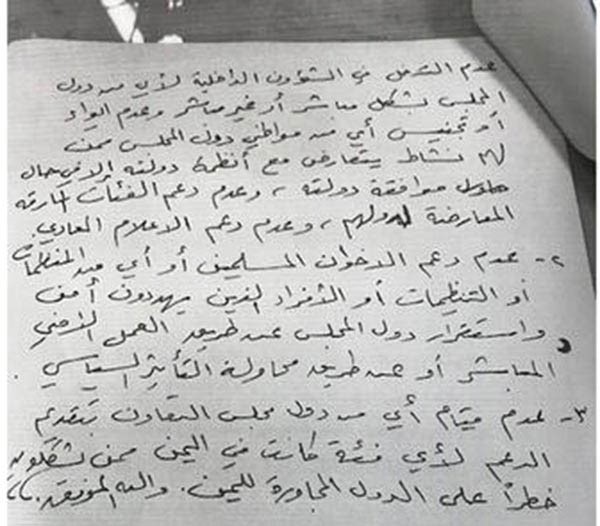 عدم التدخل في الشؤون الداخلية لأي من دول
المجلس بشكل مباشر أو غير مباشر وعدم ايواء
أو تجنيس أي من مواطني دول المجلس ممن
لهم نشاط يتعارض مع أنظمة دولته إلا في حال
موافقة دولته ، وعدم دعم الفئات المارقة
المعارضة لدولهم ، وعدم دعم الاعلام المعادي.
٢- عدم دعم الاخوان المسلمين أو أي من المنظمات
أو التنظيمات أو الأفراد الذين يهددون أمن
واستقرار دول المجلس عن طريق العمل الأمني
المباشر أو عن طريق محاولة التأثير السياسي .
٣- عدم قيام أي من دول مجلس التعاون بتقديم
الدعم لأي فئة كانت في اليمن ممن يشكلون
خطراً على الدول المجاورة لليمن. والله الموفق ،،